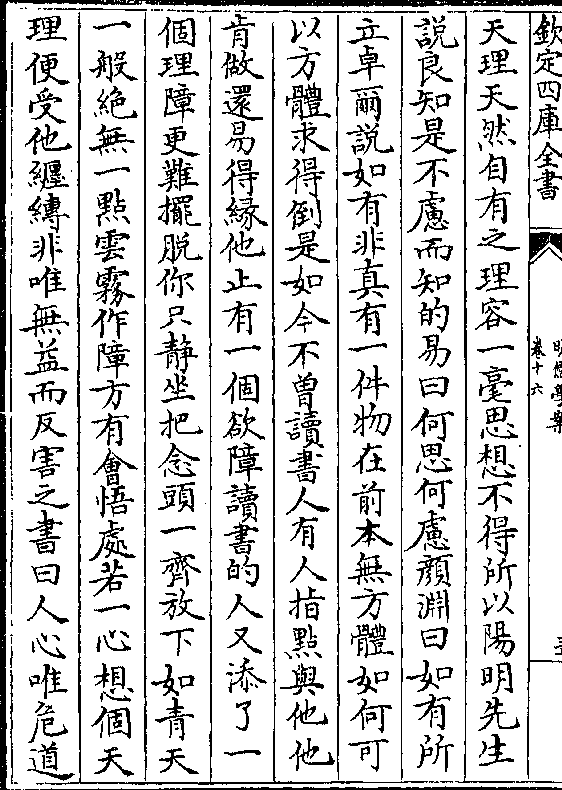 欽定四庫全書
明儒學案
卷十六
天理天然自有之理容一毫思想不得所以陽明先生
説良知是不慮而知的易曰何思何慮顔淵曰如有所
立卓爾説如有非真有一件物在前本無方體如何可
以方體求得倒是如今不曾讀書人有人指點與他他
肯做還易得縁他止有一個欲障讀書的人又添了一
個理障更難擺脱你只静坐把念頭一齊放下如青天
一般絶無一點雲霧作障方有會悟處若一心想個天
理便受他纏縛非唯無益而反害之書曰人心唯危道